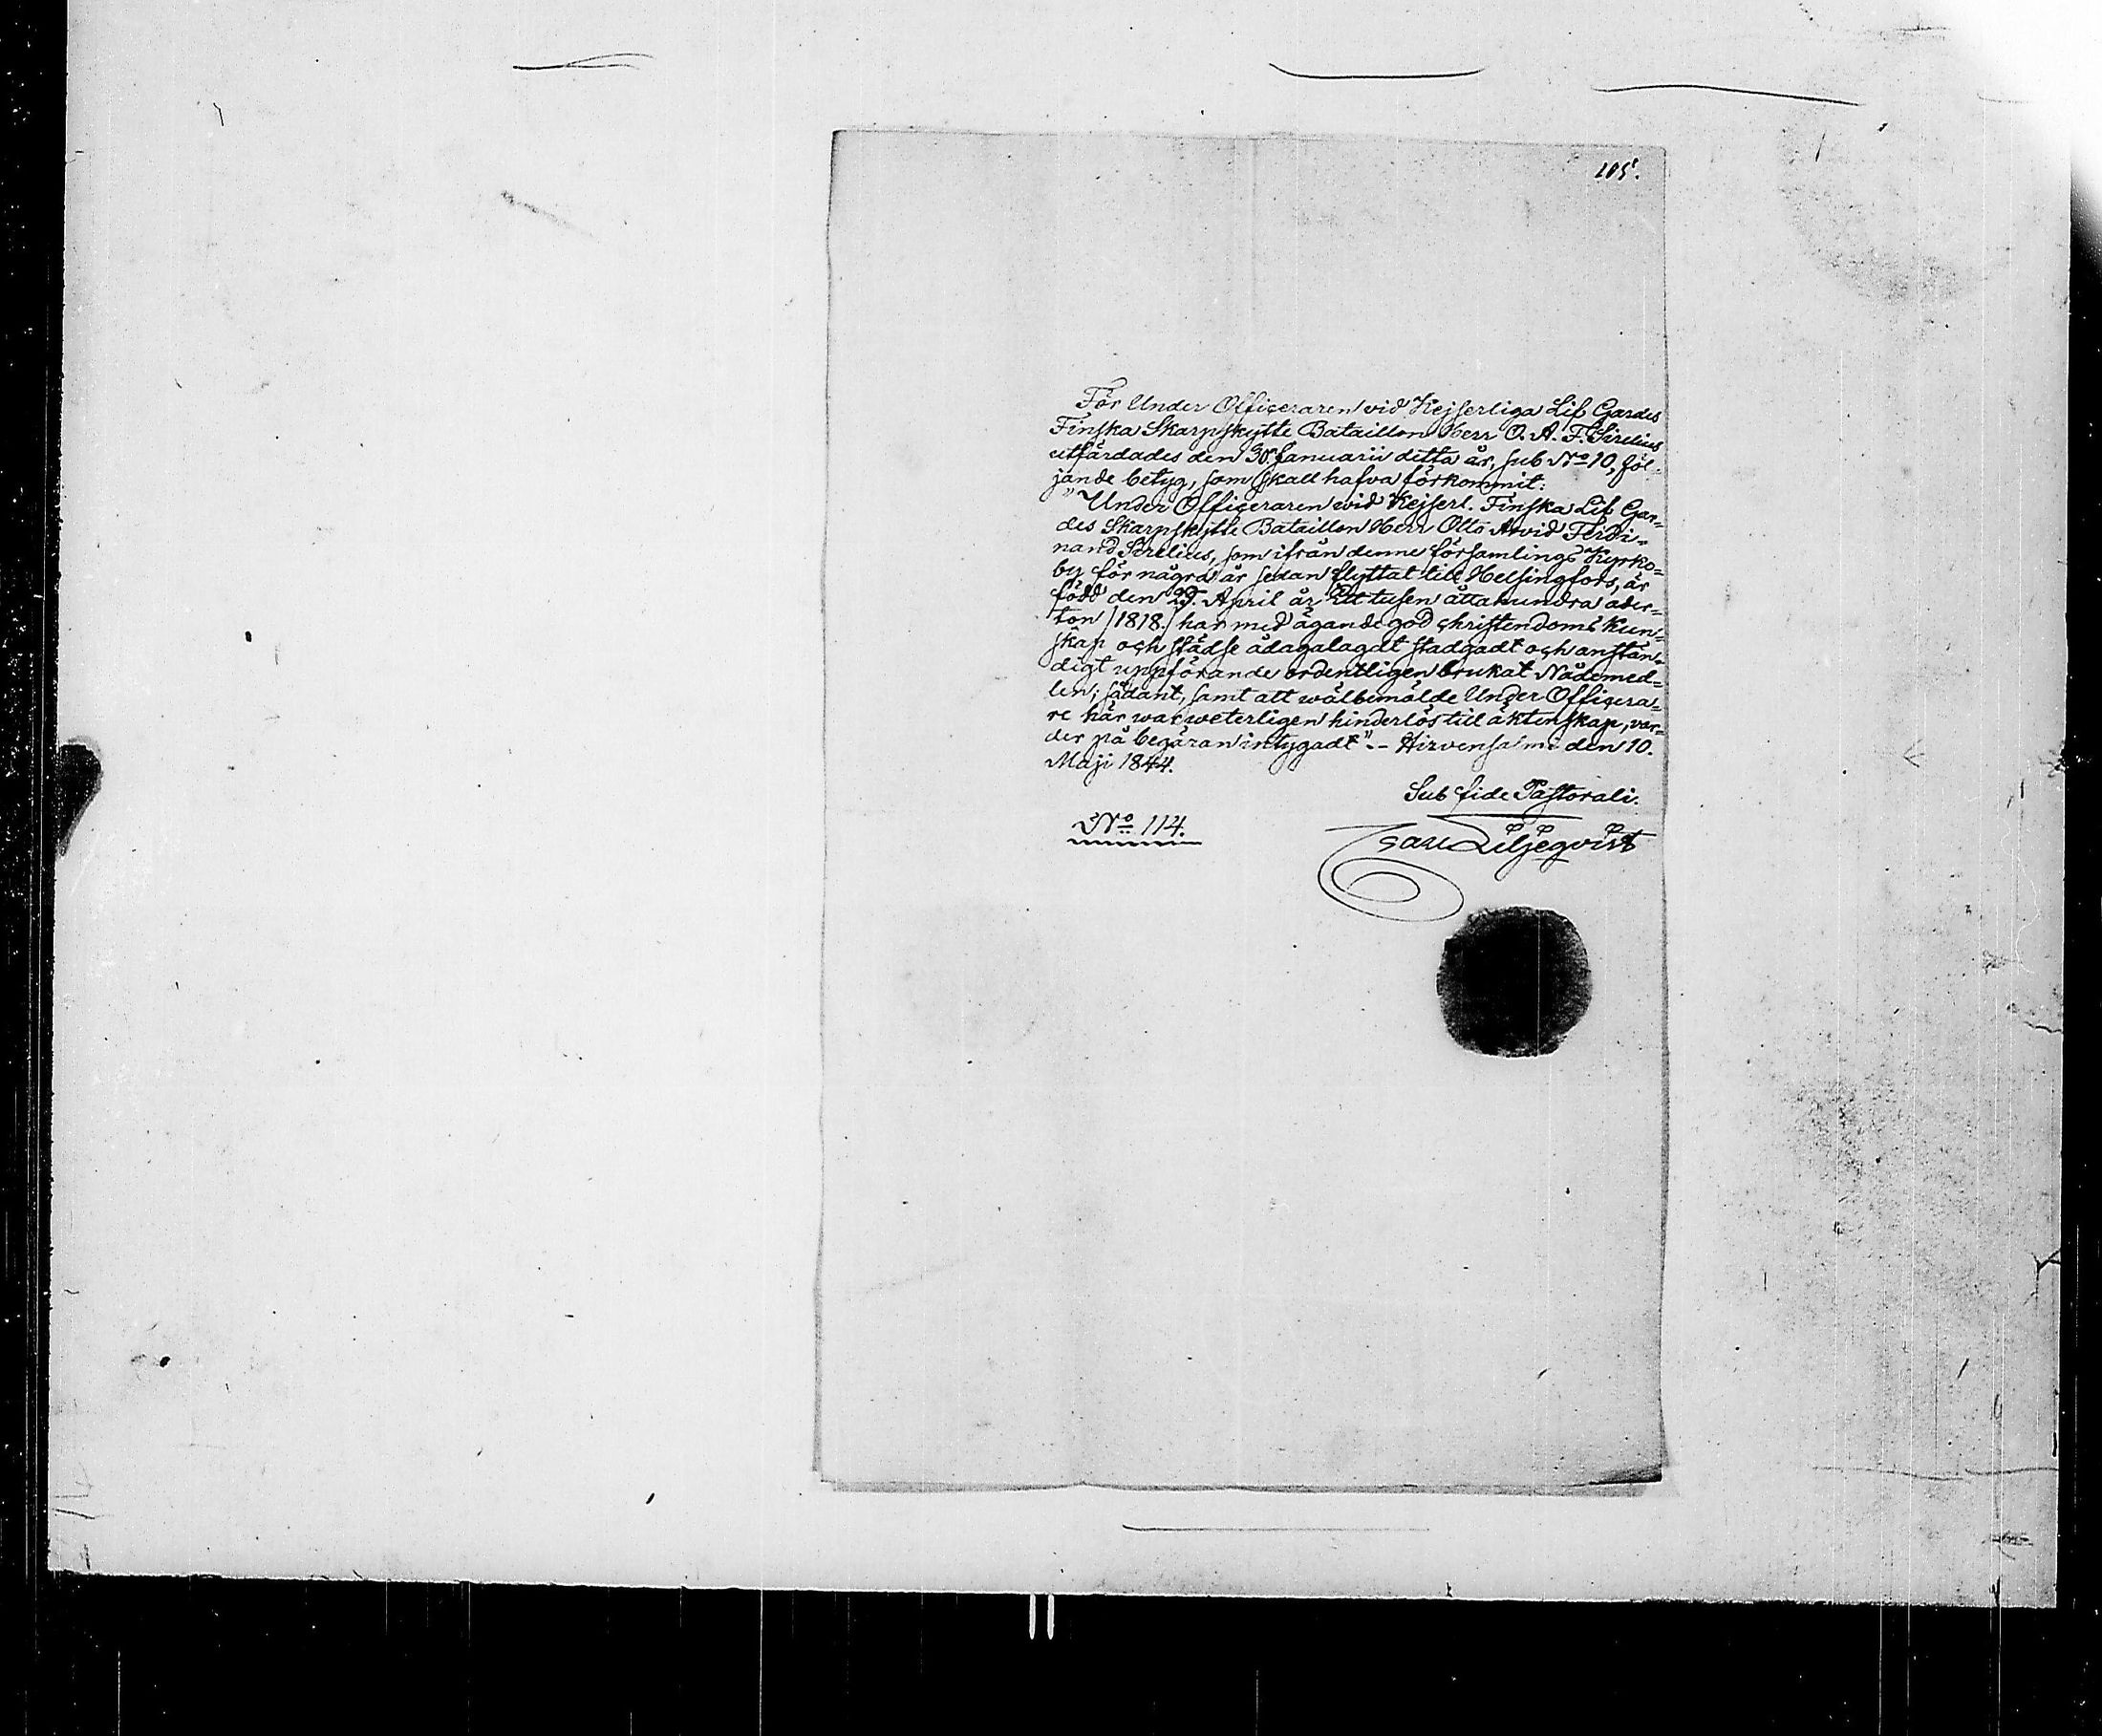 105.
För Under Officeraren vid Kejserliga Lif Gardes
Finska Skarpskytte Bataillon Herr O. A. F. Sirelius
utfärdades den 30. Januarii detta år, sub No 10, föl-
jande betyg, som skall hafva förkommit:
"Under Officeraren wid Kejserl. Finska Lif Gar-
des Skarpskytte Bataillon Herr Otto Arvid Ferdi-
nand Sirelius, som ifrån denne församlings Kyrko-
by för några år sedan flyttat till Helsingfors, är
född den April år Ett tusen åttahundra ader-
ton /1818./ har med ägande god christendoms kun-
skap och städse ådagalagdt stadgadt och anstän-
digt uppförande ordentligen brukat Nådemed-
len; sådant, samt att wälbemälde Under Officera-
re här war weterligen hinderlös till äktenskap, var-
der på begäran intygadt". - Hirvensalmi den 10.
Maji 1844.
Sub fide Pastorali.
No 114.
Isac Liljeqvist